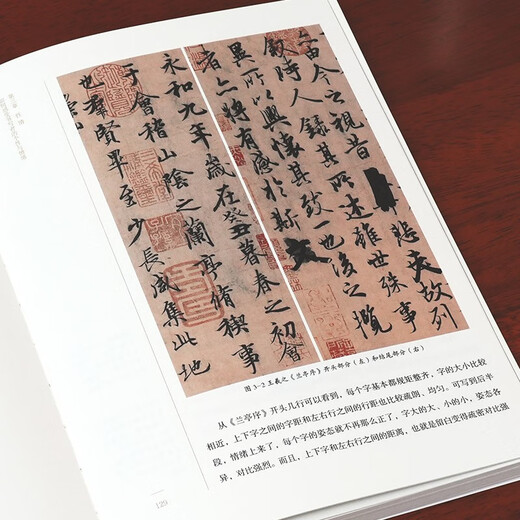 永和九年歲在癸丑暮春之初會
于會稽山陰之蘭亭脩禊事
也羣賢畢至少長咸集此地
由今之視昔悲夫故列
敘時人錄其所述雖世殊事
異所以興懷其致一也後之攬
者亦將有感於斯文
图 3-2 王羲之《兰亭序》开头部分（左）和结尾部分（右）
从《兰亭序》开头几行可以看到，每个字基本都规矩整齐，字的大小比较
相近，上下字之间的字距和左右行之间的行距也比较疏朗、均匀。可写到后半
段，情绪上来了，每个字的姿态就不再那么正了，字大的大、小的小，姿态各
异，对比强烈。而且，上下字和左右行之间的距离，也就是留白变得疏密对比强
129